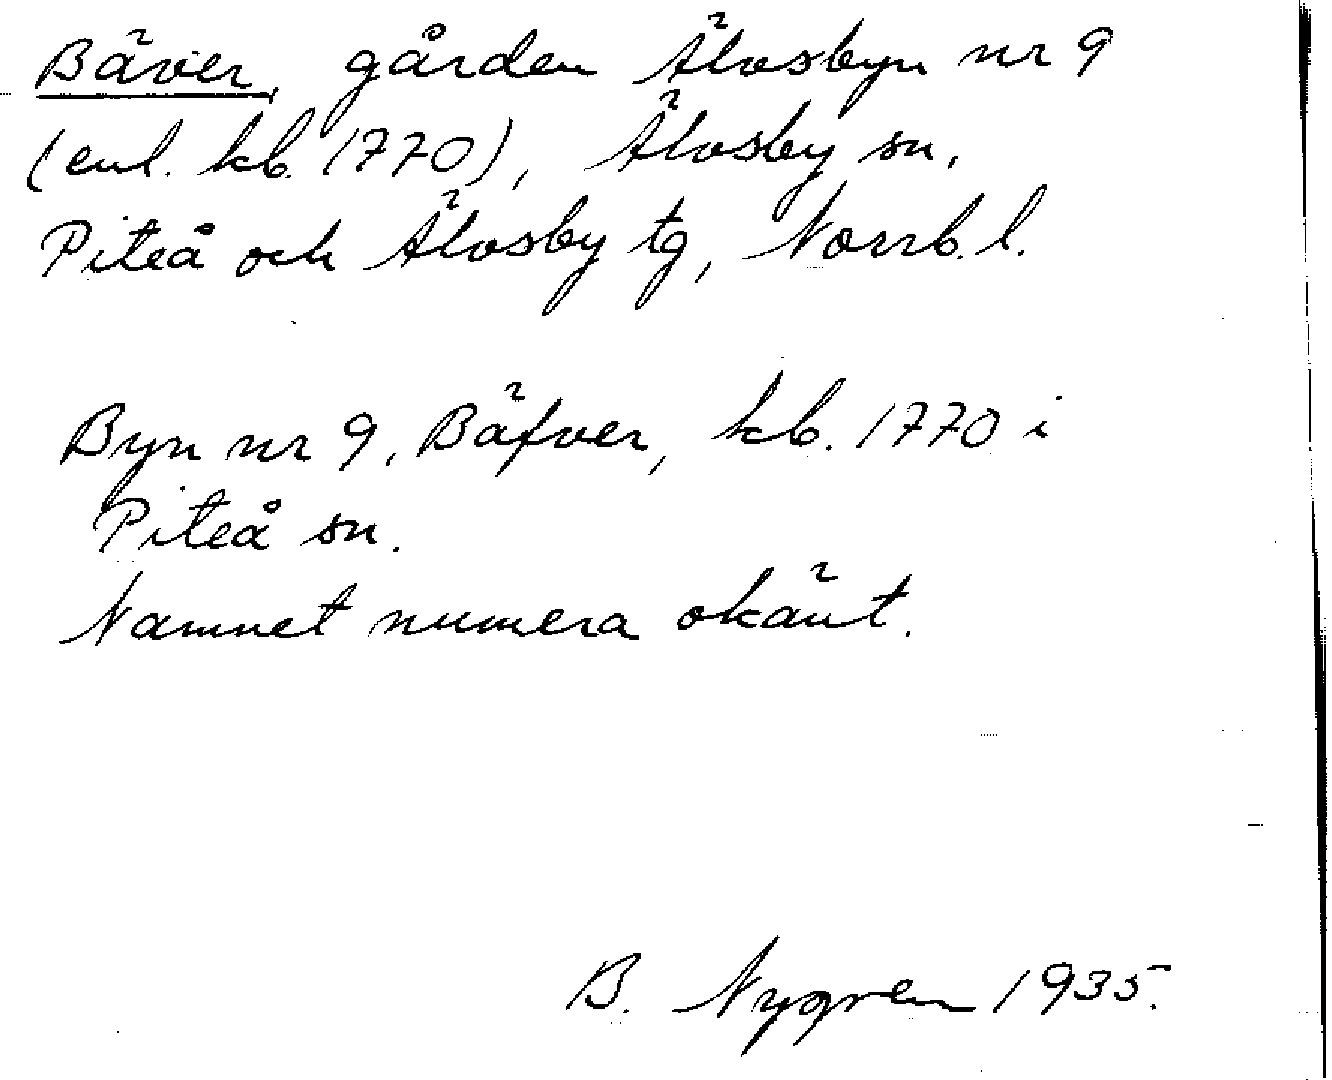 Bäver, gården Älvsbyn nr 9
(enl. kb. 1770), Älvsby sn,
Piteå och Älvsby tg, Norrb. l.
Byn nr 9, Bäfver, kb. 1770 i
Piteå sn.
Namnet numera okänt.
B. Nygren 1935.